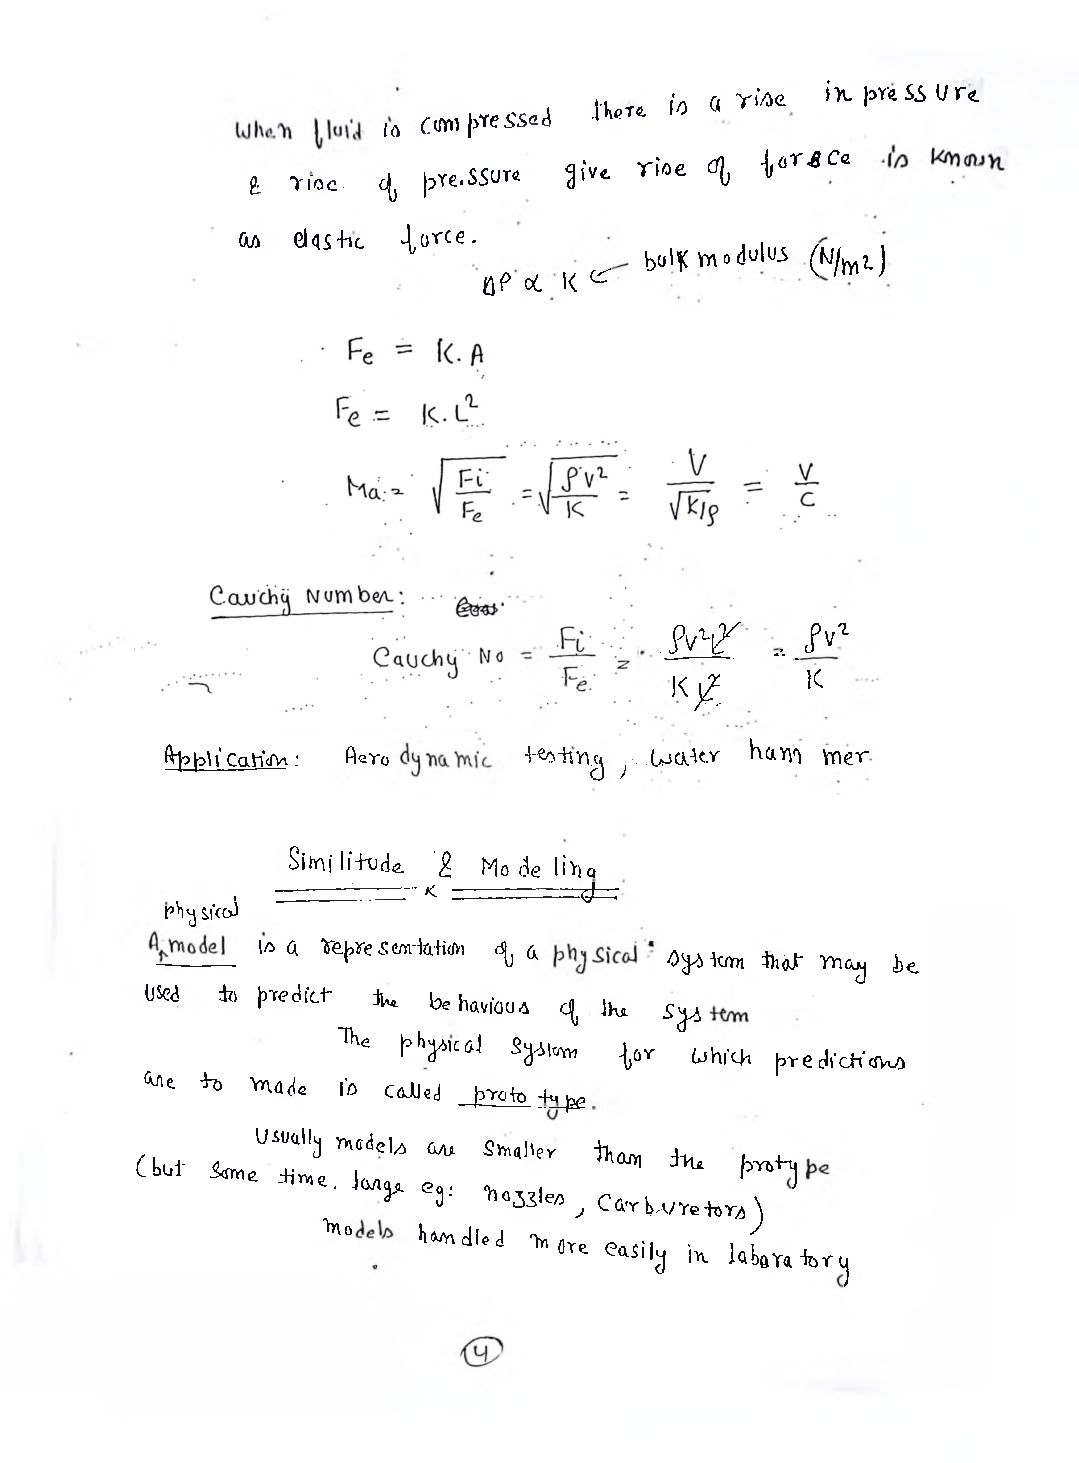 When fluid is compressed there is a rise in pressure
& rise of pressure give rise of force is known
as elastic force.
ΔP ∝ K ← bulk modulus (N/m2)
Fe = K.A
Fe = K.L²
Ma = √(Fi/Fe) = √(ρv²/K) = V/√(K/ρ) = V/C
Cauchy Number:
Cauchy No = Fi/Fe = ρv²L²/KL² = ρv²/K
Application: Aerodynamic testing, water hammer
Similitude & Modeling
physical
A model is a representation of a physical system that may be
used to predict the behavious of the system
The physical system for which predictions
are to made is called prototype.
Usually models are smaller than the protype
(but some time. large eg: nozzles, Carburetors)
models handled more easily in labaratory
4